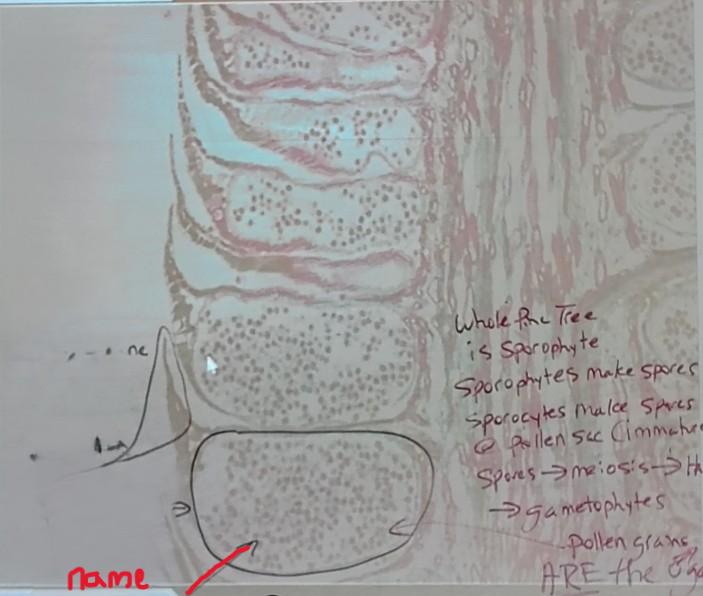 Whole Pine Tree
is Sporophyte
Sporophytes make spores
Sporocytes make spores
@ pollen sac (immature
Spores → meiosis →
→ gametophytes
pollen grains
ARE the
ne
name